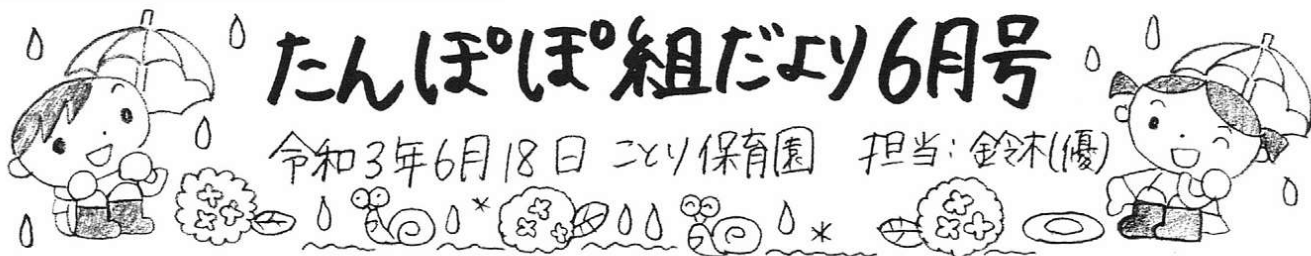 たんぽぽ組だより6月号
令和3年6月18日 ことり保育園 担当:鈴木(優)